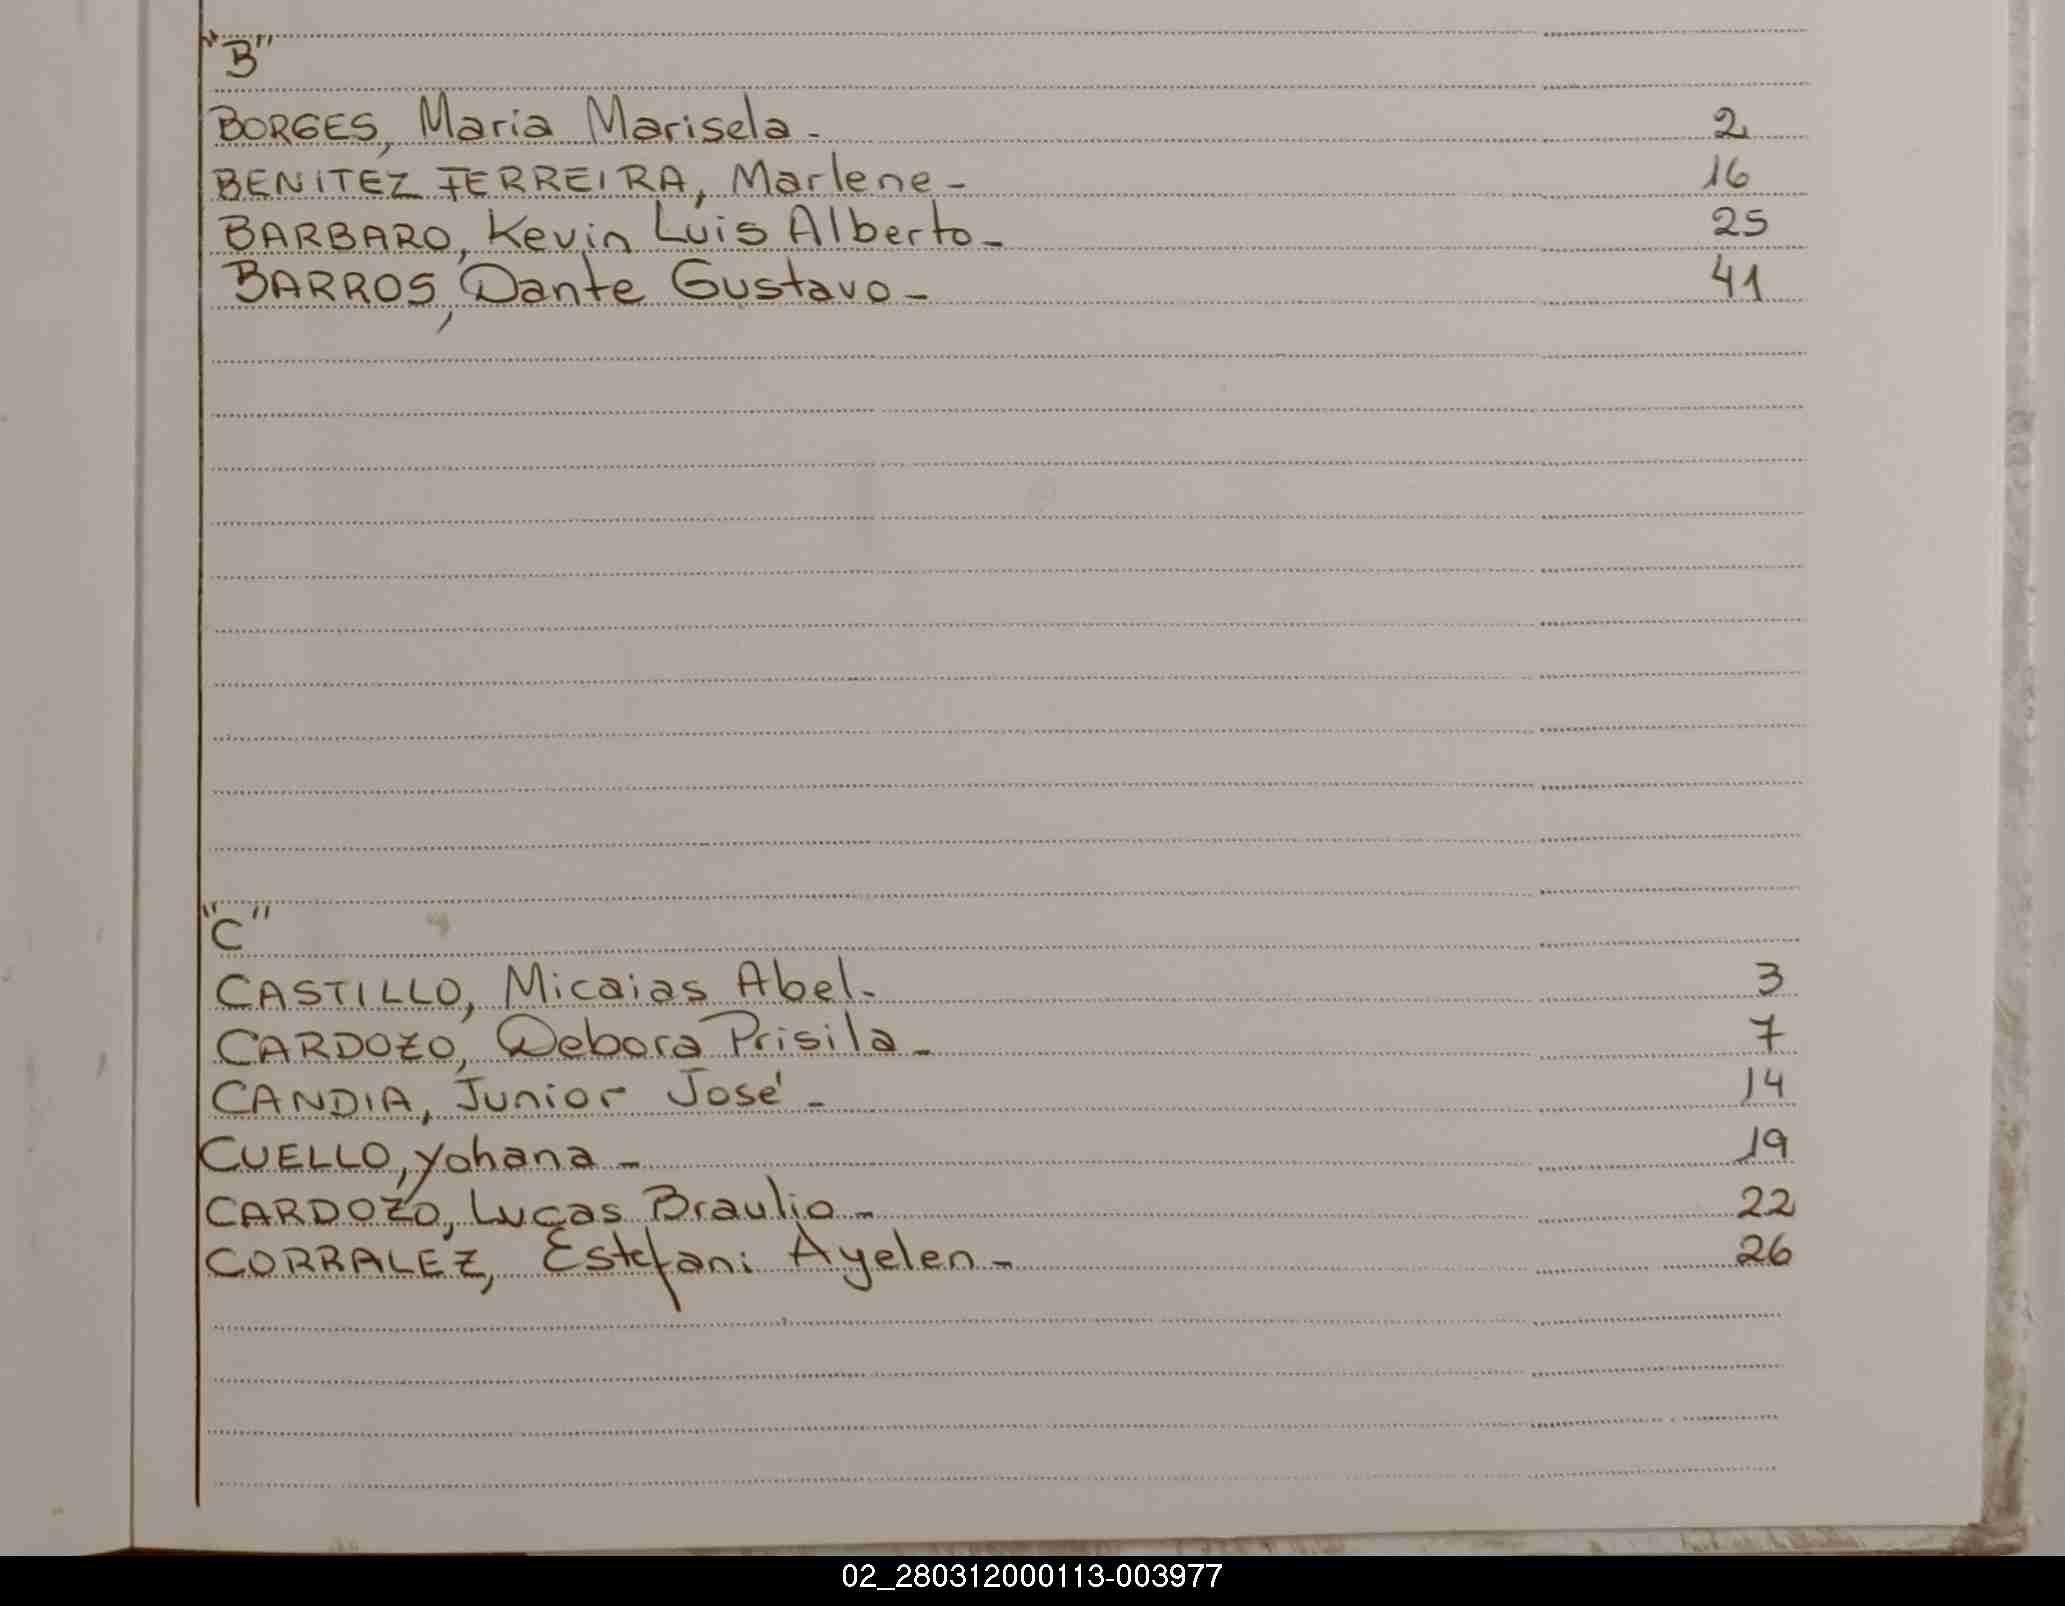 "B"
BORGES, Maria Marisela - 2
BENITEZ FERREIRA, Marlene - 16
BARBARO, Kevin Luis Alberto - 25
BARROS, Dante Gustavo - 41
"C"
CASTILLO, Micaias Abel - 3
CARDOZO, Debora Prisila - 7
CANDIA, Junior José - 14
CUELLO, Yohana - 19
CARDOZO, Lucas Braulio - 22
CORRALEZ, Estefani Ayelen - 26
02_280312000113-003977